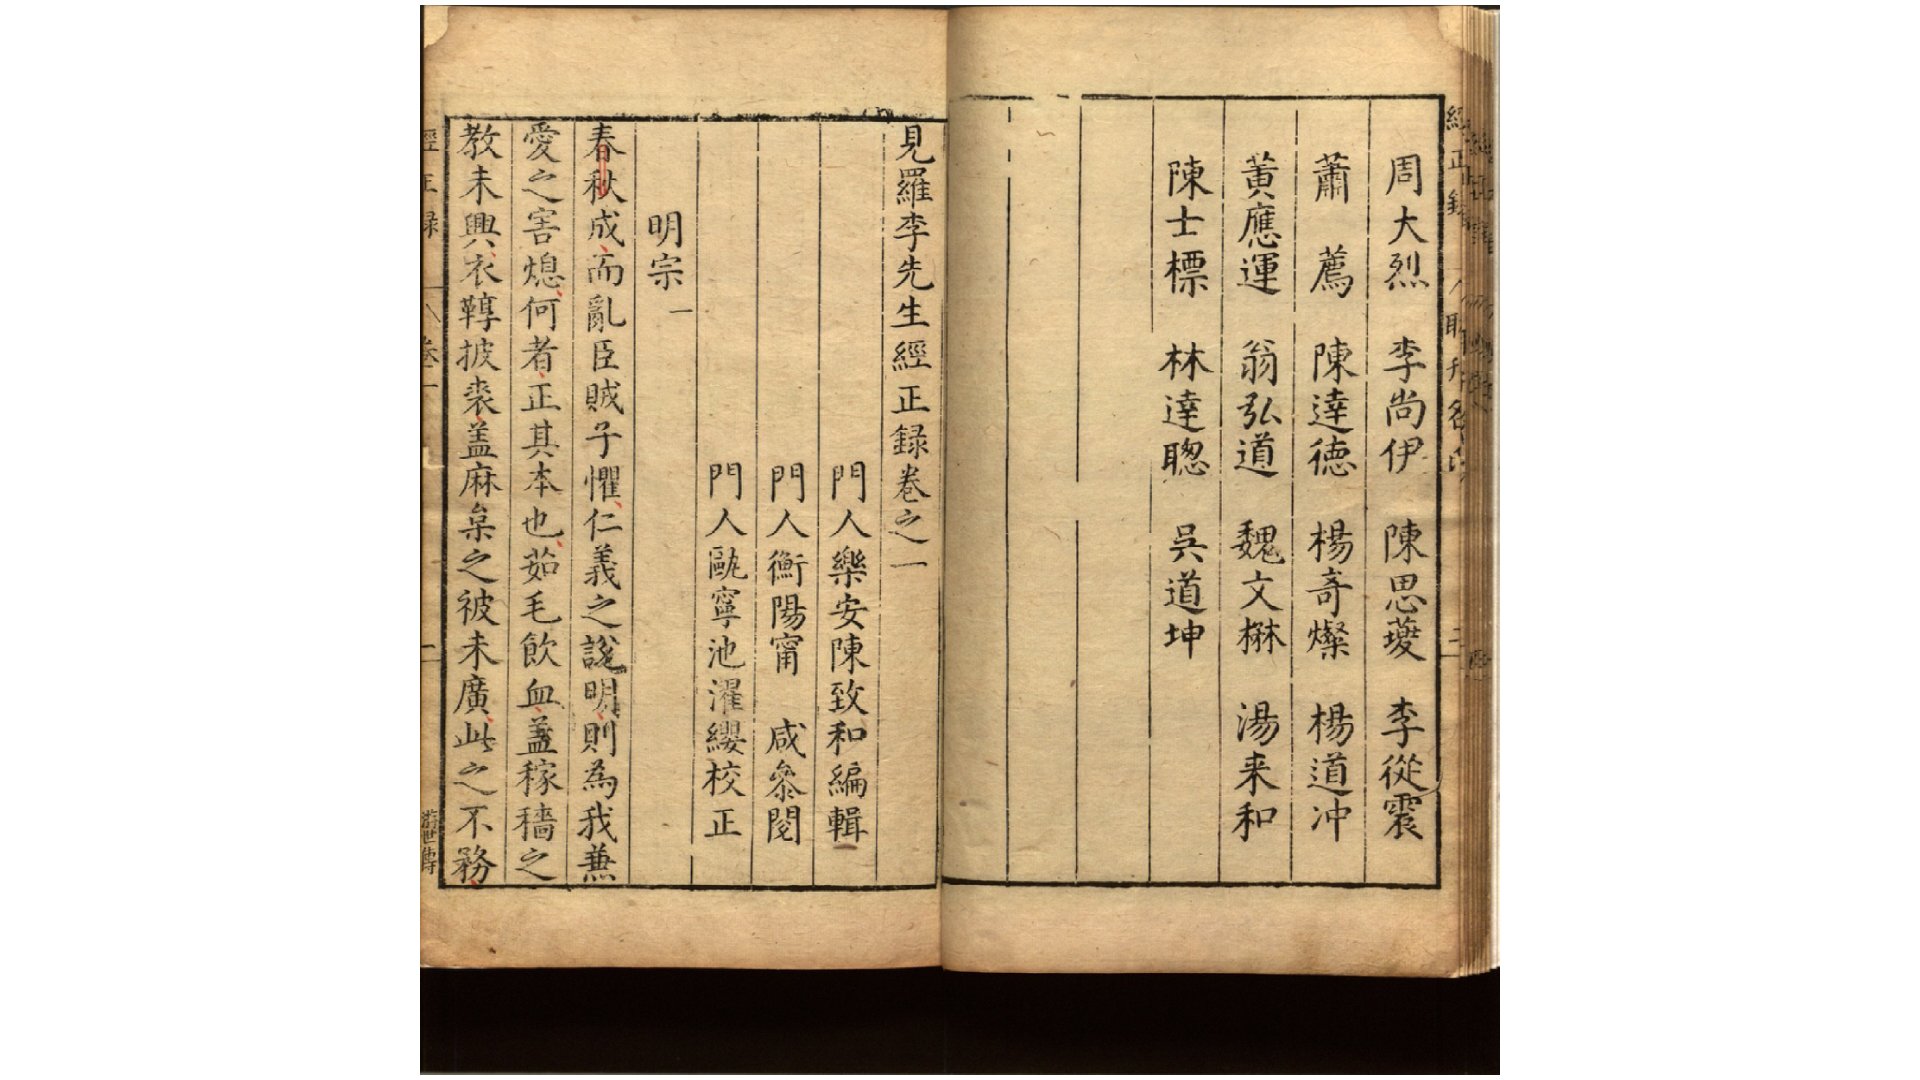 周大烈 李尚伊 陳思䕫 李從震
蕭 薦 陳逹德 楊奇燦 楊道冲
黃應運 翁弘道 魏文楙 湯来和
陳士標 林逹聦 吳道坤
見羅李先生經正録卷之一
門人樂安陳致和編輯
門人衡陽甯 咸叅閱
門人甌寧池濯纓校正
明宗一
春秋成而亂臣賊子懼仁義之說明則為我兼
愛之害熄何者正其本也茹毛飲血蓋稼穡之
教未興衣鞟披裘盖麻枲之被未廣此之不務
經正録 卷一 二
游世傳